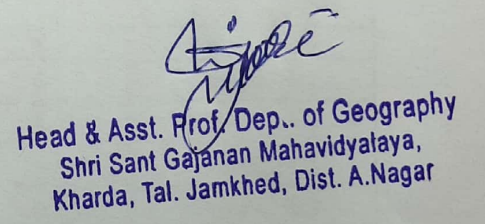 Head & Asst. Prof. Dep.. of Geography
Shri Sant Gajanan Mahavidyalaya,
Kharda, Tal. Jamkhed, Dist. A.Nagar